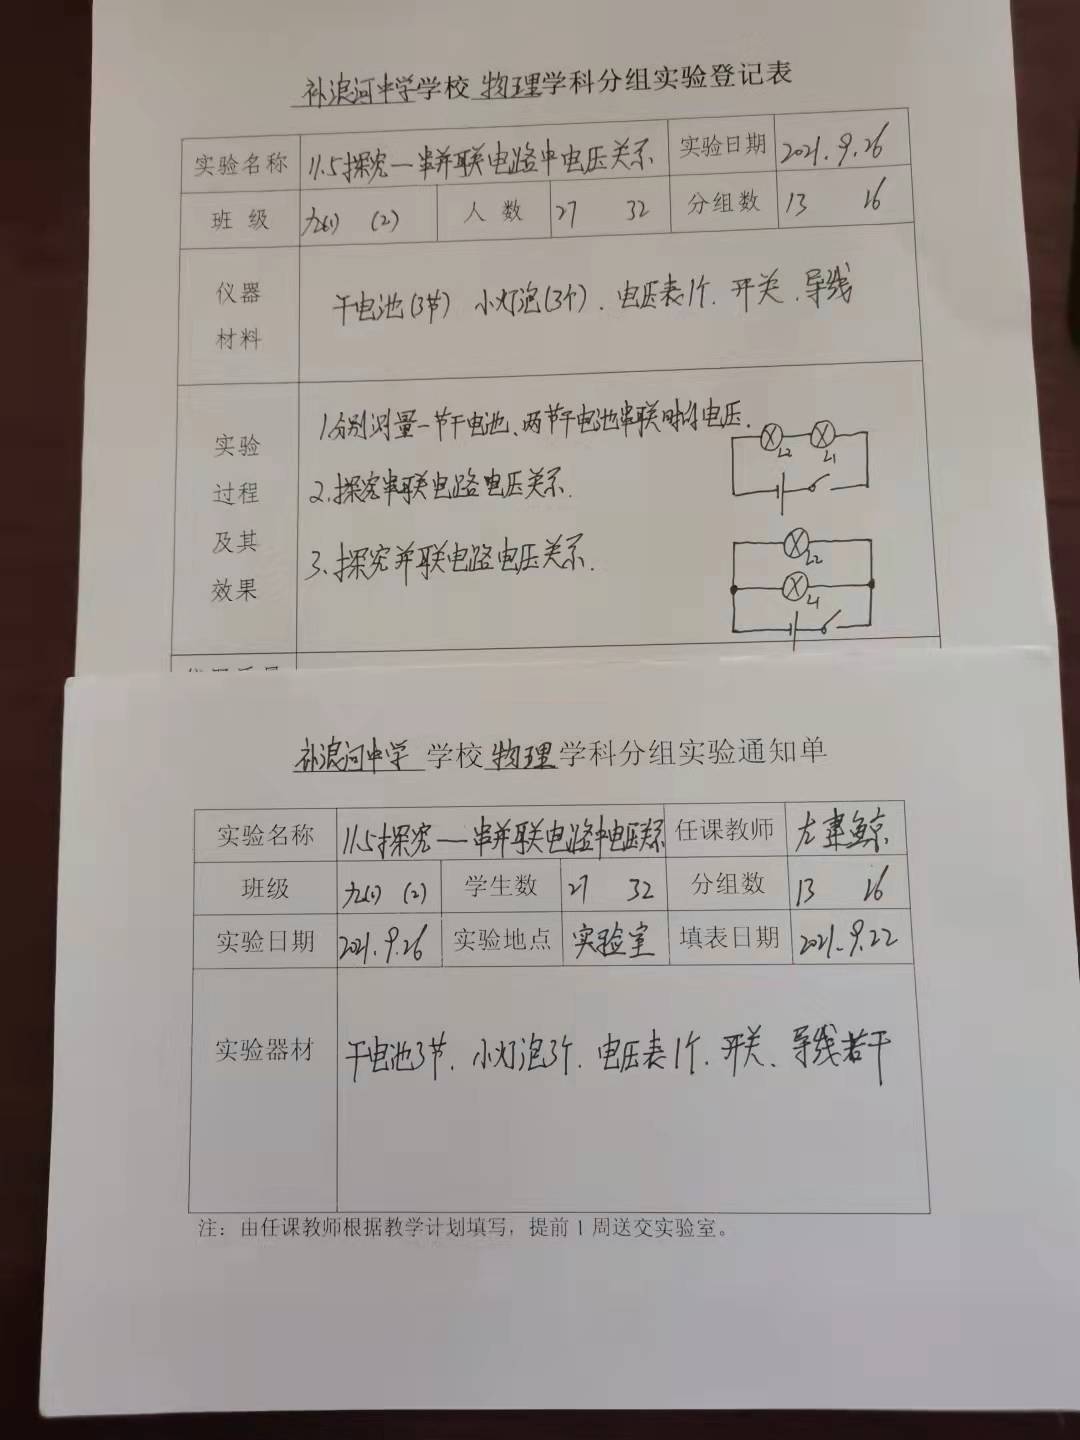 补浪河中学学校 物理学科分组实验登记表
实验名称 11.5探究—串并联电路中电压关系 实验日期 2021.9.26
班 级 九(1) (2) 人 数 27 32 分组数 13 16
仪器
材料
干电池(3节) 小灯泡(3个). 电压表1个. 开关. 导线
实验
过程
及其
效果
1.分别测量一节干电池、两节干电池串联时的电压.
L2 L1
2.探究串联电路电压关系.
3.探究并联电路电压关系.
L2
L1
补浪河中学 学校 物理学科分组实验通知单
实验名称 11.5探究—串并联电路中电压关系 任课教师 左建鲸
班级 九(1) (2) 学生数 27 32 分组数 13 16
实验日期 2021.9.26 实验地点 实验室 填表日期 2021.9.22
实验器材 干电池3节. 小灯泡3个. 电压表1个. 开关、导线若干
注：由任课教师根据教学计划填写，提前1周送交实验室。